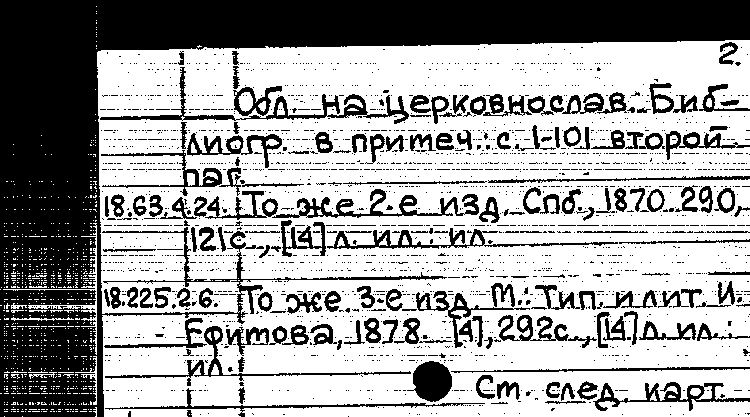 2.
Обл. на церковнослав. Биб-
лиогр. в примеч.: с. 1-101 второй
паг.
18.63.4.24. То же 2-е изд. Спб., 1870. 290,
121 с., [14] л. ил.: ил.
18.225.2.6. То же. 3-е изд. М.: Тип. и лит. И.
- Ефимова, 1878. [4], 292с., [14] л. ил.:
ил.
См. след. карт.